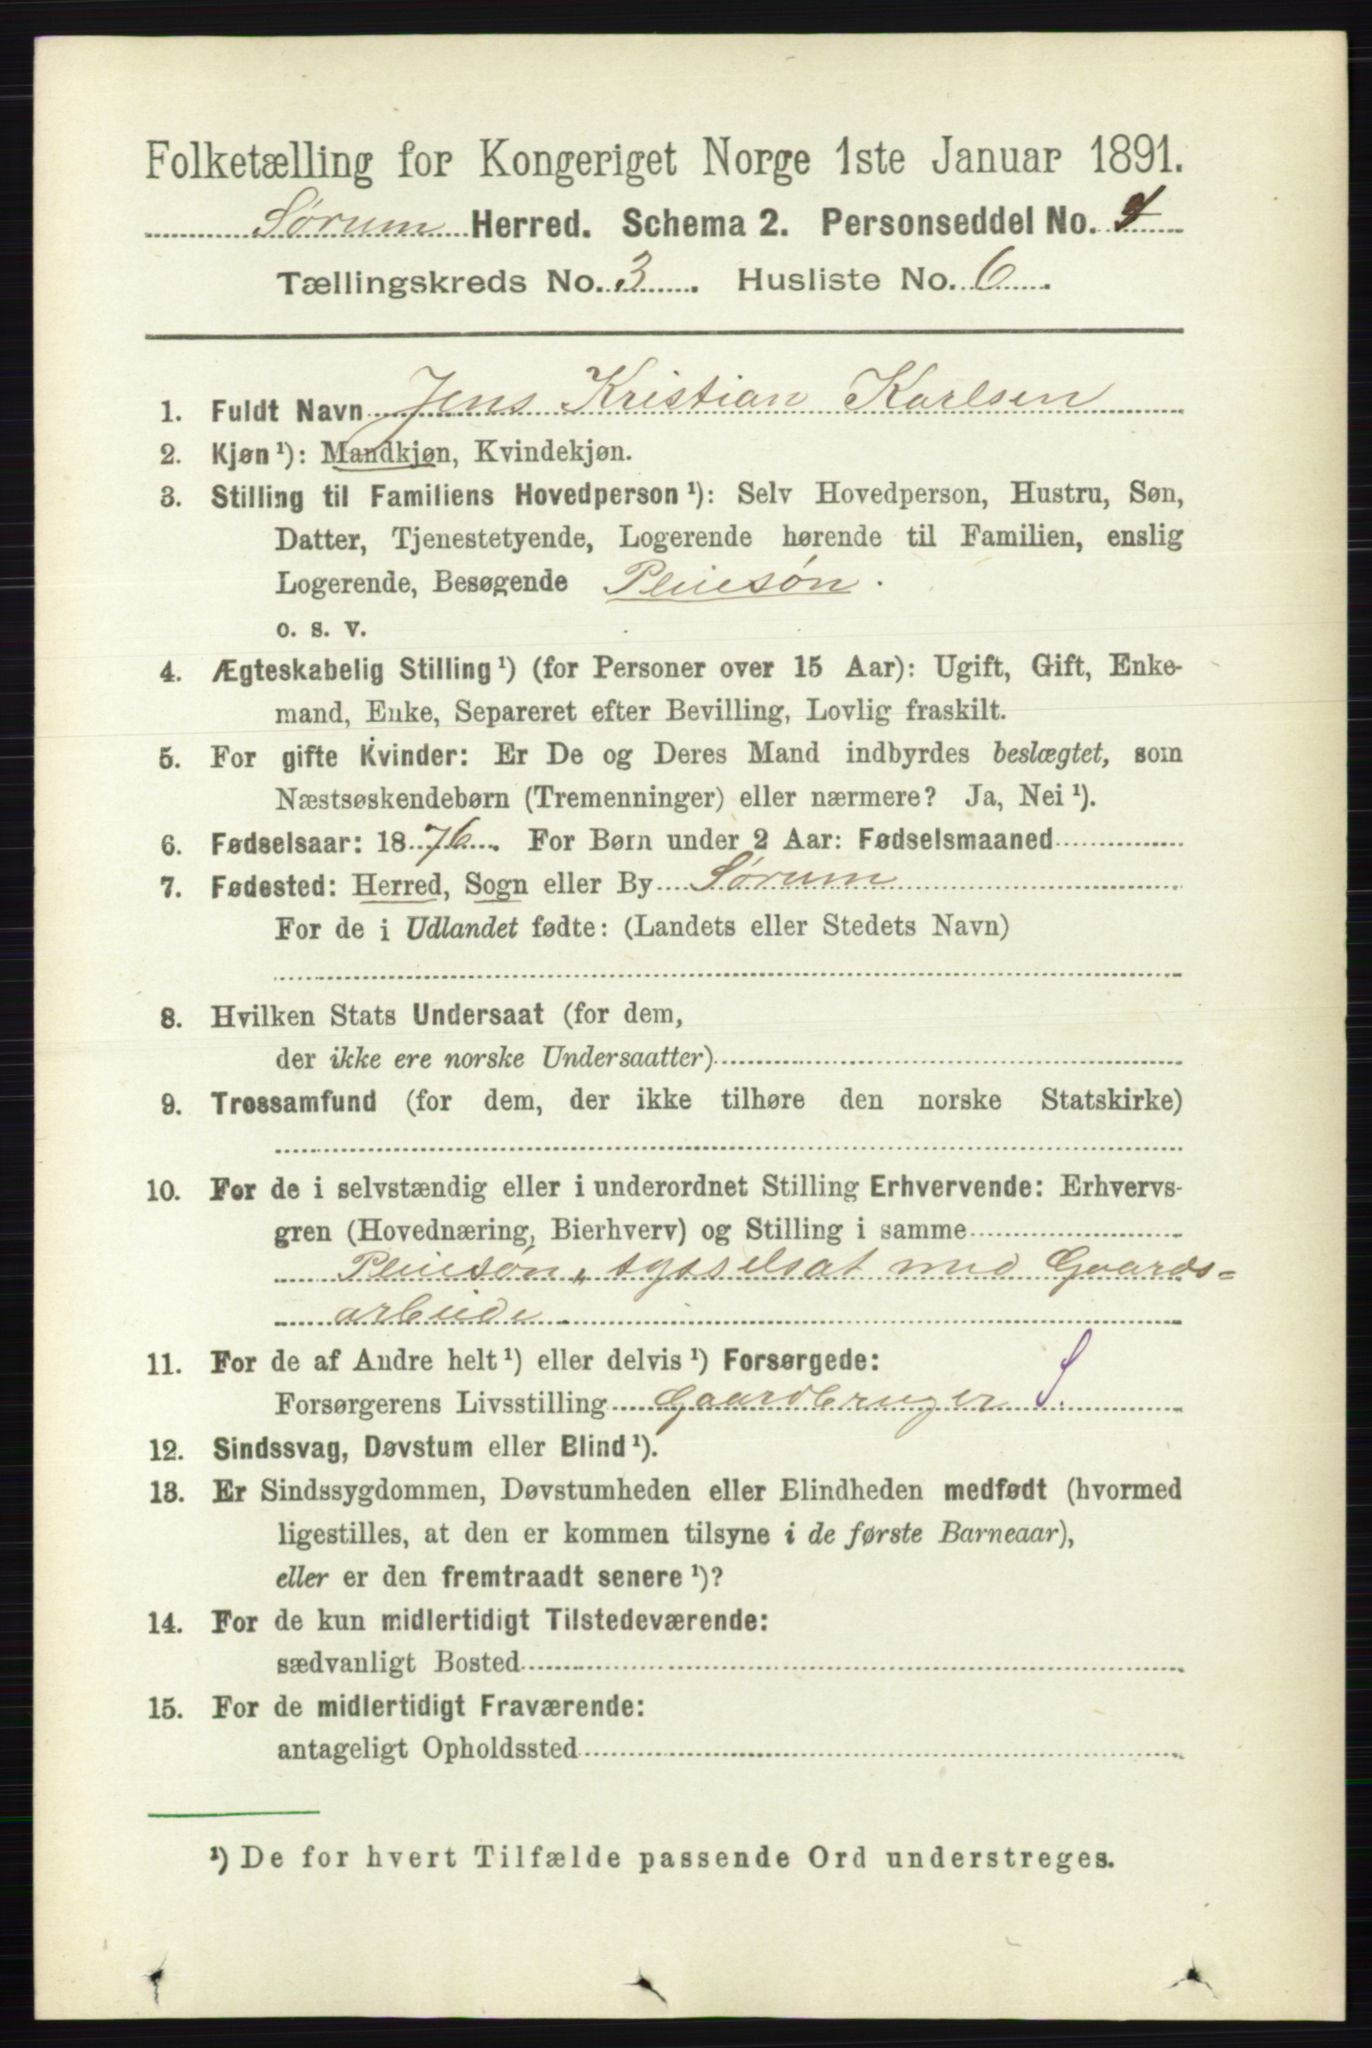 Folketælling for Kongeriget Norge 1ste Januar 1891.
Sørum Herred. Schema 2. Personseddel No.
Tællingskreds No. 3. Husliste No. 6.
1. Fuldt Navn Jens Kristian Karlsen
2. Kjøn¹): Mandkjøn, Kvindekjøn.
3. Stilling til Familiens Hovedperson¹): Selv Hovedperson, Hustru, Søn,
Datter, Tjenestetyende, Logerende hørende til Familien, enslig
Logerende, Besøgende Pleiesøn.
o. s. v.
4. Ægteskabelig Stilling¹) (for Personer over 15 Aar): Ugift, Gift, Enke-
mand, Enke, Separeret efter Bevilling, Lovlig fraskilt.
5. For gifte Kvinder: Er De og Deres Mand indbyrdes beslægtet, som
Næstsøskendebørn (Tremenninger) eller nærmere? Ja, Nei¹).
6. Fødselsaar: 1876. For Børn under 2 Aar: Fødselsmaaned
7. Fødested: Herred, Sogn eller By Sørum
For de i Udlandet fødte: (Landets eller Stedets Navn)
8. Hvilken Stats Undersaat (for dem,
der ikke ere norske Undersaatter)
9. Trossamfund (for dem, der ikke tilhøre den norske Statskirke)
10. For de i selvstændig eller i underordnet Stilling Erhvervende: Erhvervs-
gren (Hovednæring, Bierhverv) og Stilling i samme
Pleiesøn, sysselsat med Gaards-
arbeide
11. For de af Andre helt¹) eller delvis¹) Forsørgede:
Forsørgerens Livsstilling Gaardbruger S.
12. Sindssvag, Døvstum eller Blind¹).
13. Er Sindssygdommen, Døvstumheden eller Blindheden medfødt (hvormed
ligestilles, at den er kommen tilsyne i de første Barneaar),
eller er den fremtraadt senere¹)?
14. For de kun midlertidigt Tilstedeværende:
sædvanligt Bosted
15. For de midlertidigt Fraværende:
antageligt Opholdssted
¹) De for hvert Tilfælde passende Ord understreges.